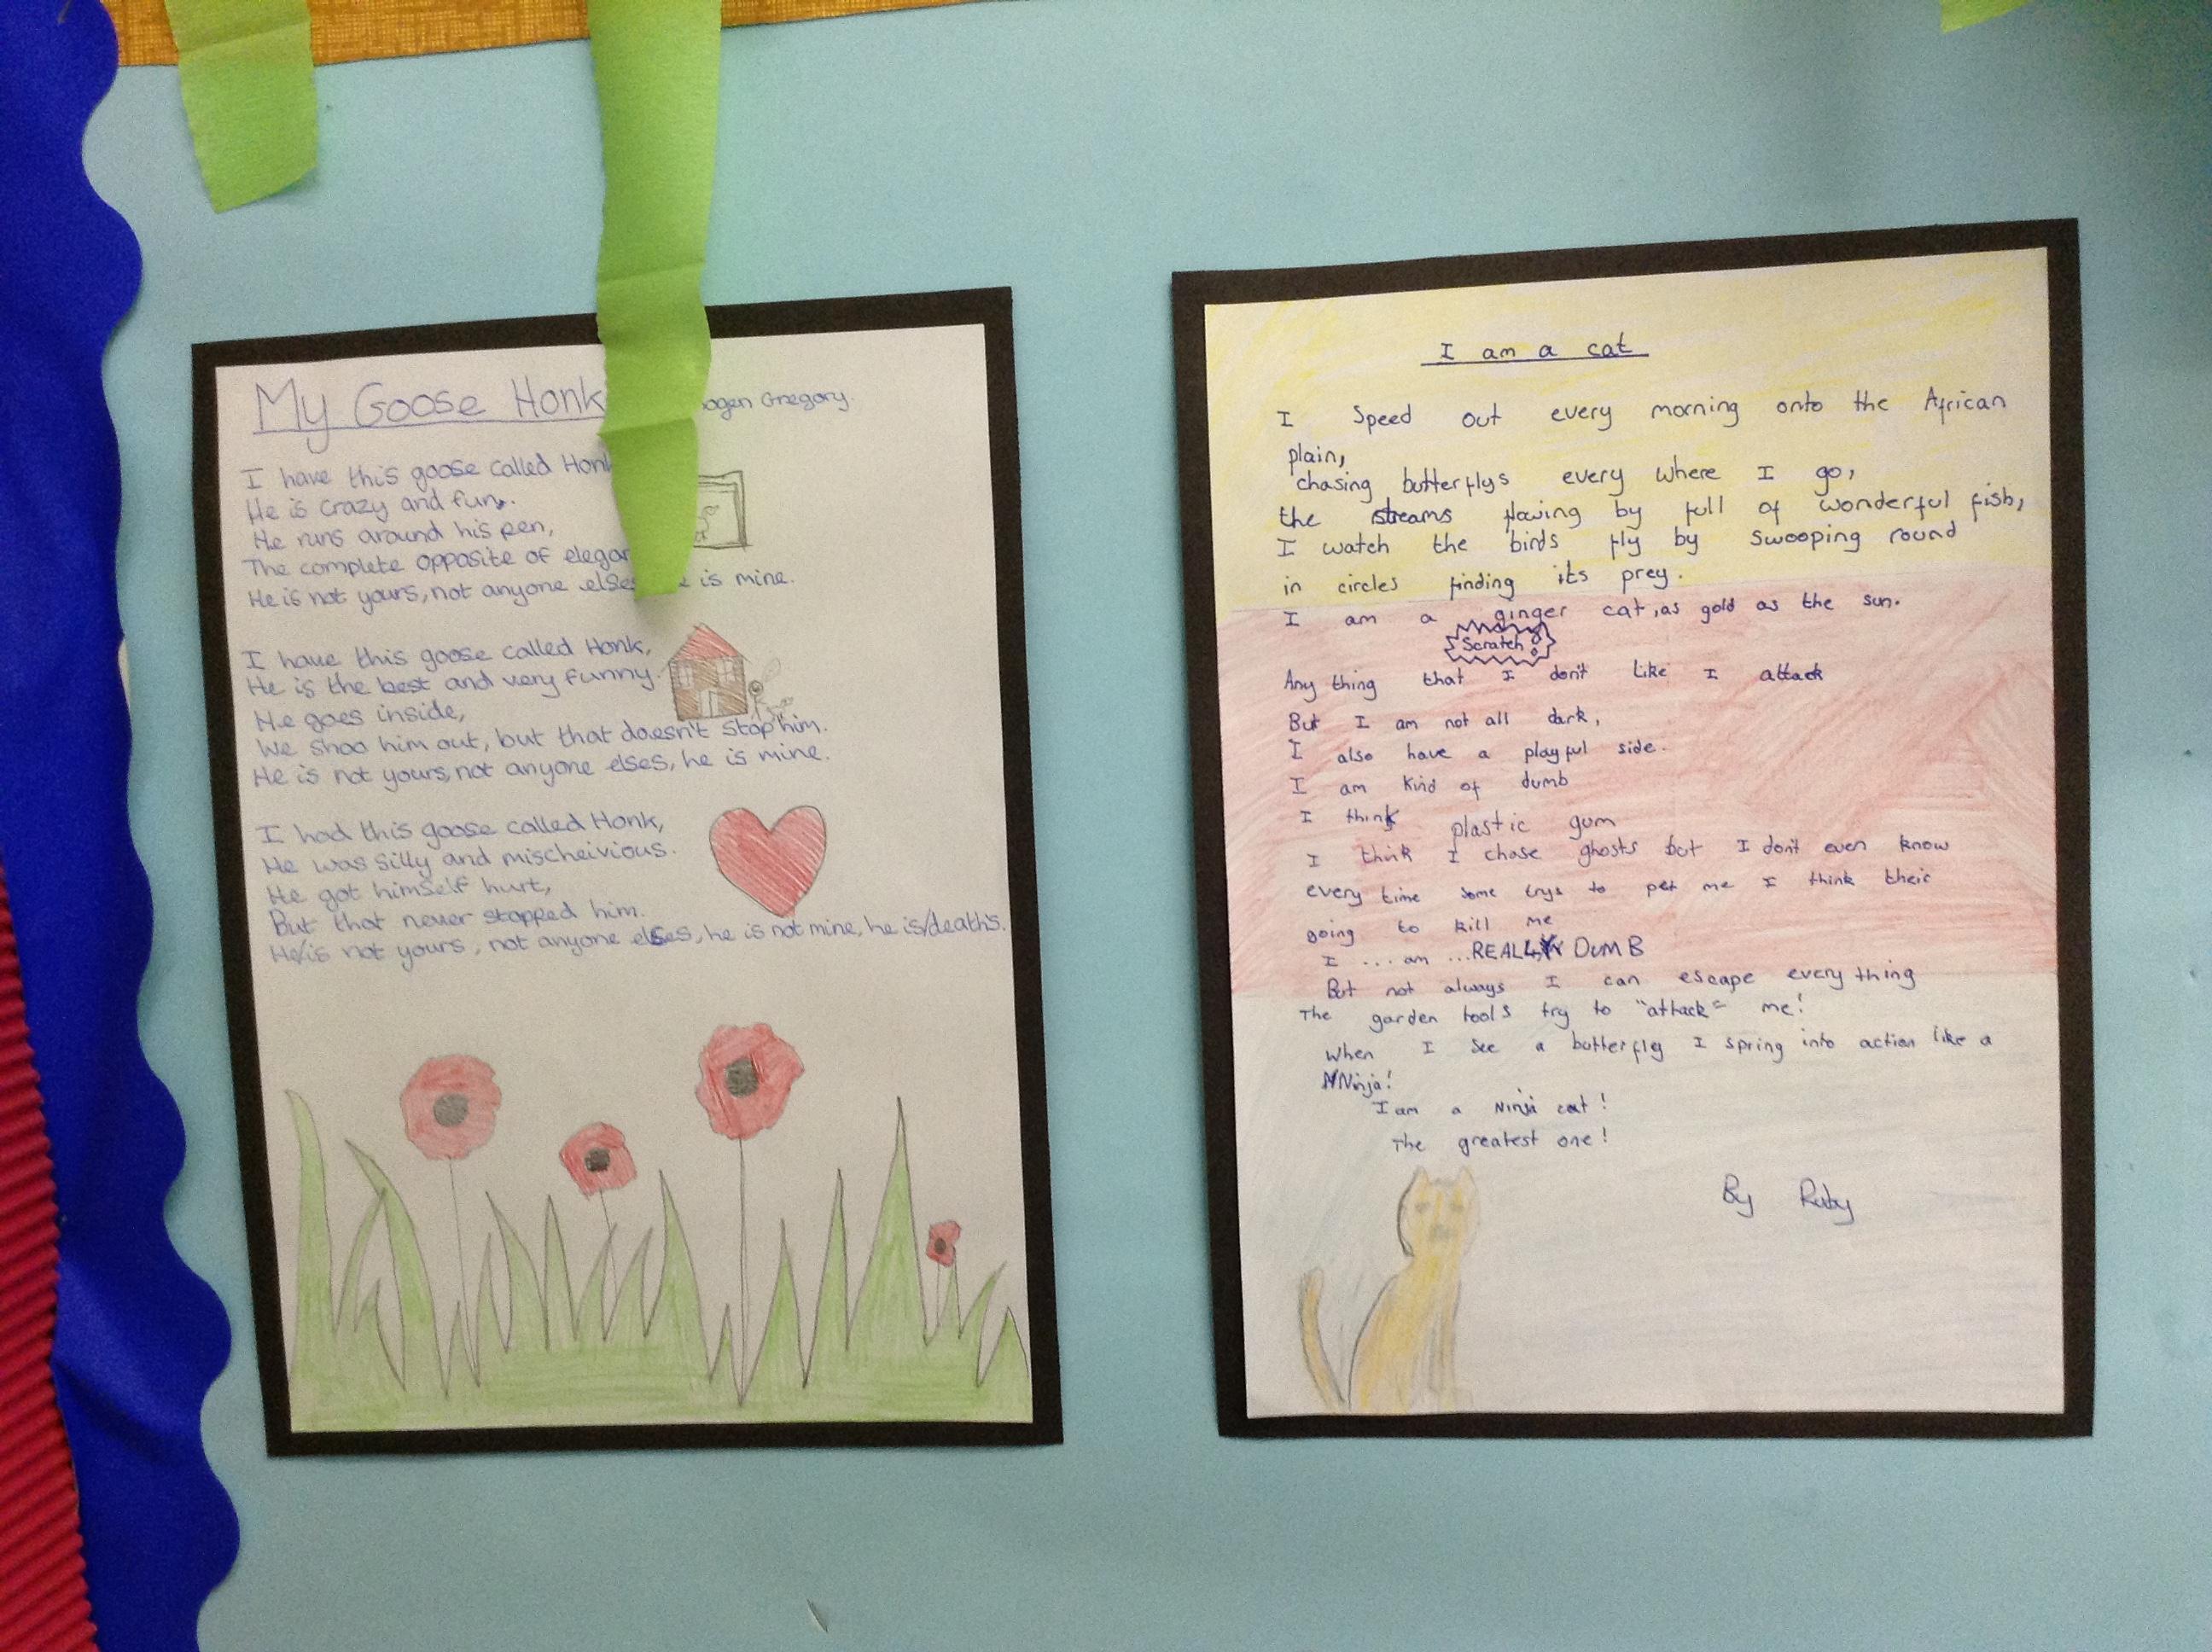 My Goose Honk
ogen Gregory.
I have this goose called Honk
He is crazy and fun.
He runs around his pen,
The complete opposite of elegan
He is not yours, not anyone elses is mine.
I have this goose called Honk,
He is the best and very funny.
He goes inside,
We shoo him out, but that doesn't stop him.
He is not yours, not anyone elses, he is mine.
I had this goose called Honk,
He was silly and mischeivious.
He got himself hurt,
But that never stopped him.
He is not yours, not anyone elses, he is not mine, he is deaths.
I am a cat
I Speed out every morning onto the African
plain,
chasing butterflys every where I go,
the streams flowing by full of wonderful fish,
I watch the birds fly by swooping round
in circles finding its prey.
I am a ginger cat, as gold as the sun.
Scratch!
Any thing that I don't like I attack
But I am not all dark,
I also have a playful side.
I am kind of dumb
I think plastic gum
I think I chase ghosts but I don't even know
every time some trys to pet me I think their
going to kill me
I ... am ... REALLY DUMB
But not always I can escape every thing
The garden tools try to "attack" me!
When I see a butterfly I spring into action like a
Ninja!
I am a Ninja cat!
The greatest one!
By Ruby